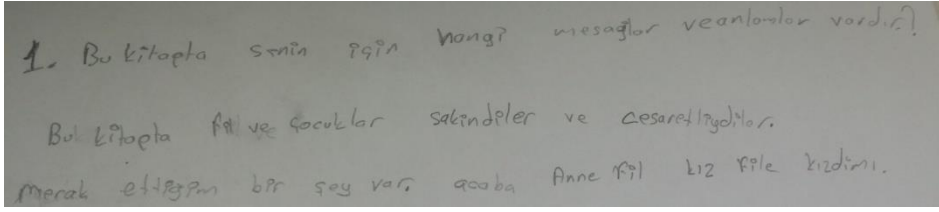 1. Bu kitapta senin için hangi mesajlar veanlamlar vardır?
Bu kitapta fil ve çocuklar sakindiler ve cesaretliydiler.
Merak ettiğim bir şey var, acaba Anne fil kız file kızdımı.